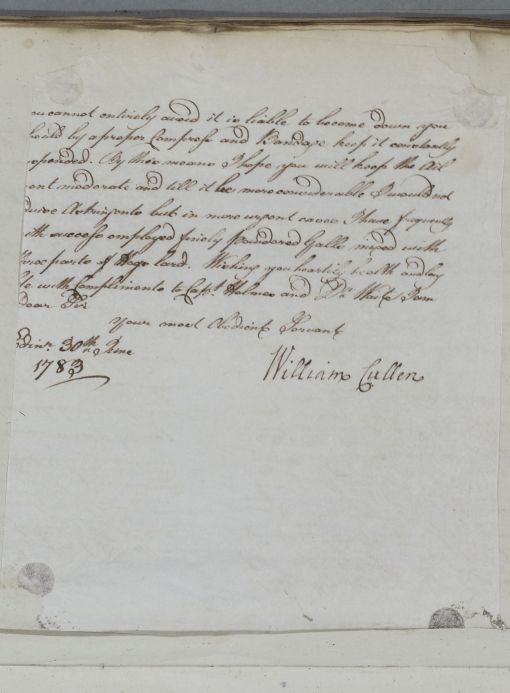 ou cannot entirely avoid it is liable to become down you
hould by a proper Compress and Bandage keep it constantly
spended. By this means I hope you will keep the Ail
ent moderate and till it be more considerable I would not
dvise Astringents but in more urgent cases I have frequently
ith success employed finely powdered Galls mixed with
three parts of Hogs lard. Wishing you heartily health and
le with Compliments to Capt. Holmes and Dr I am
Dear Sir
Your most Obedient Servant
Edinr. 30th June
1783
William Cullen